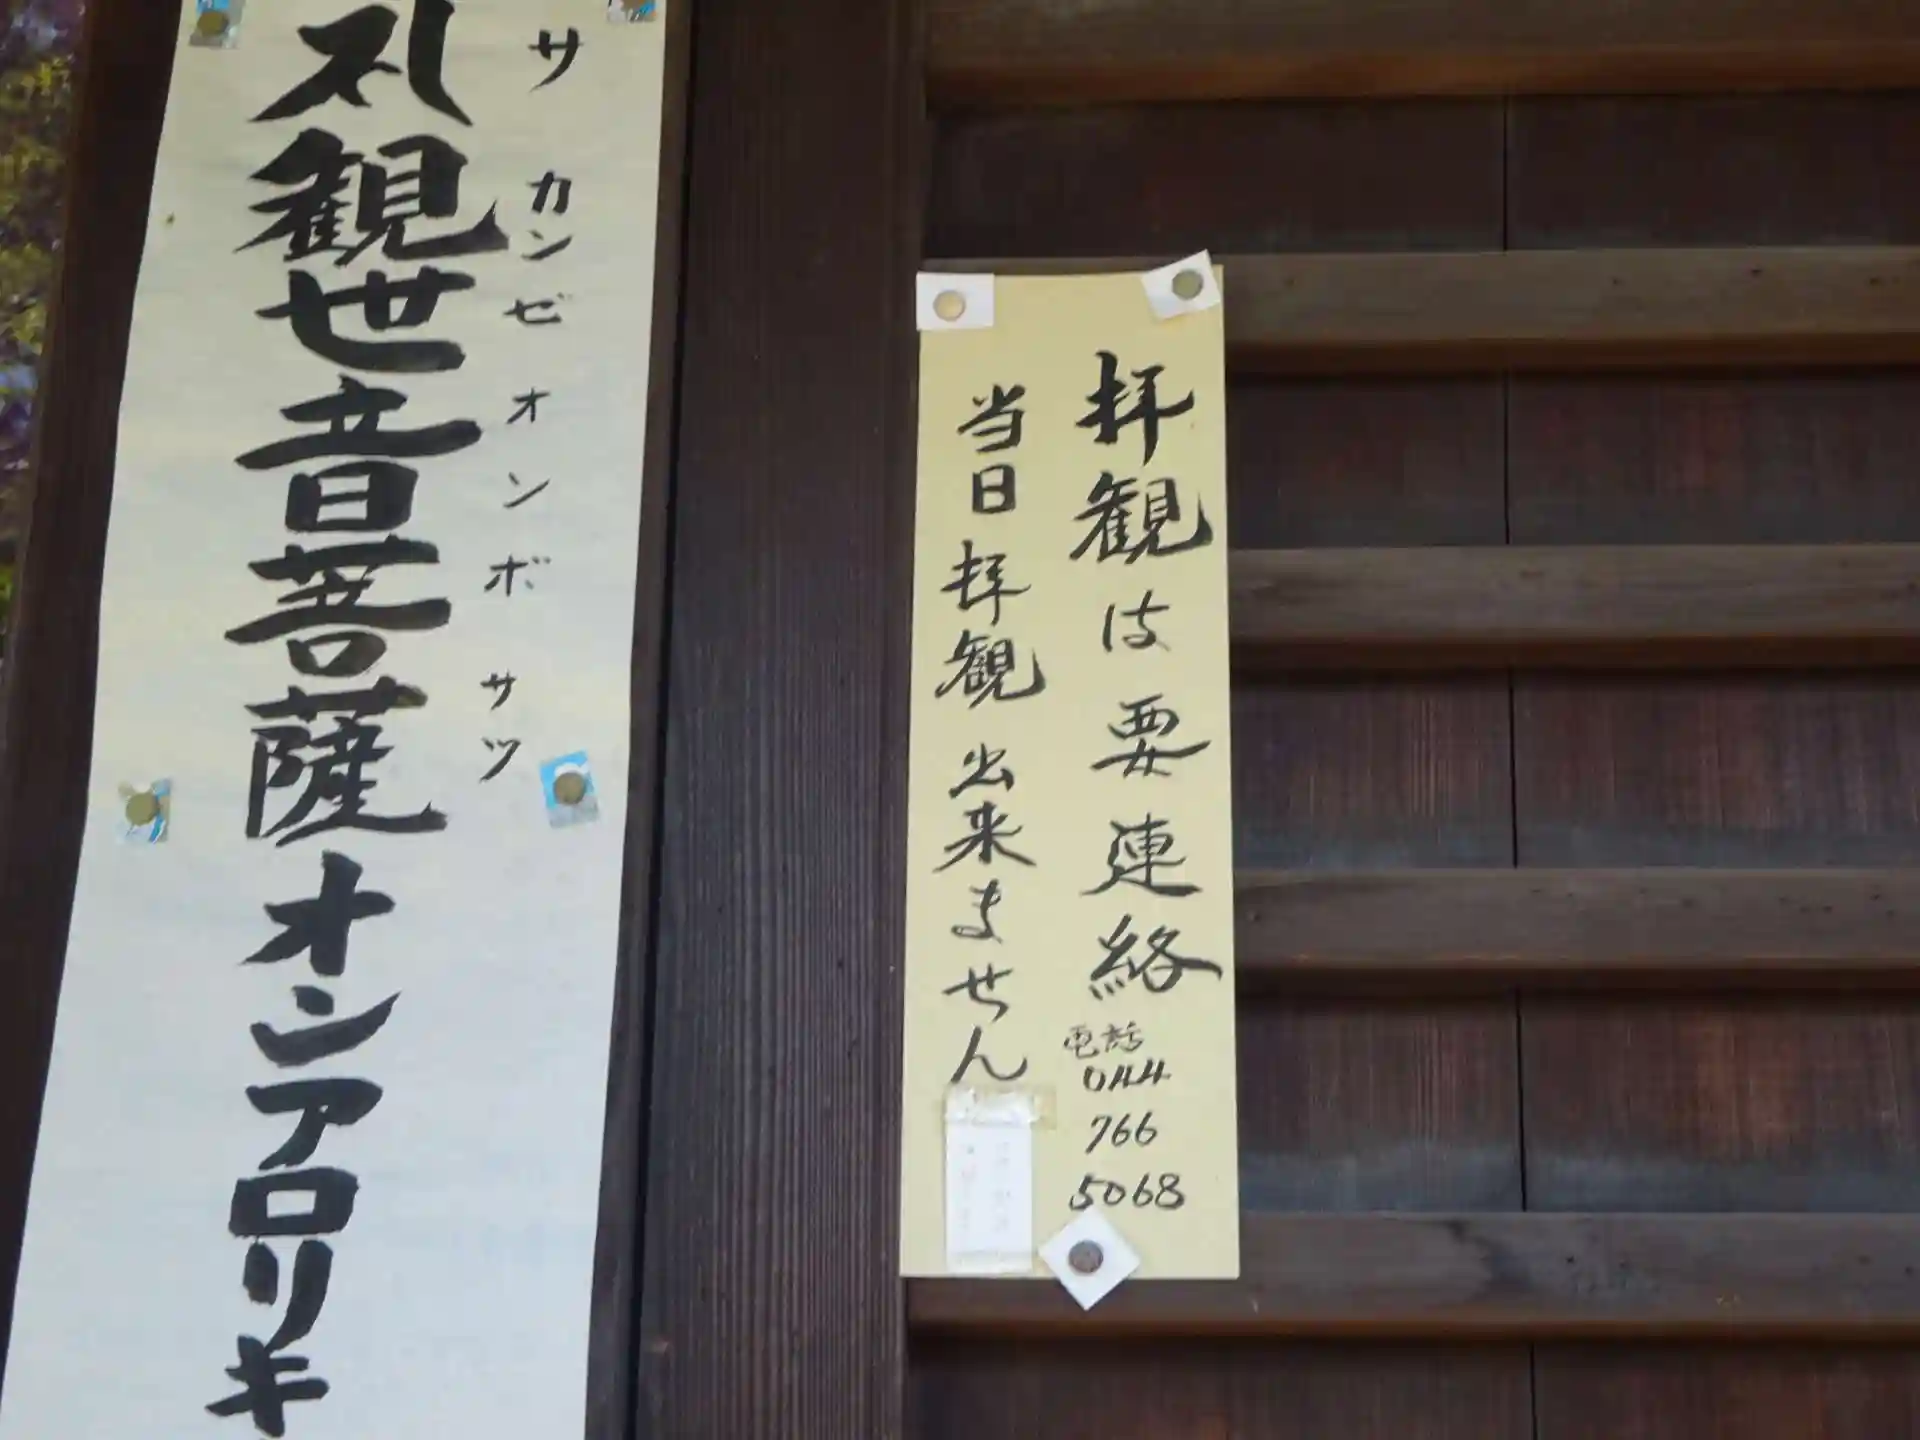 観世音菩薩オンアロリキ
サ カンゼオンボサツ
拝観は要連絡
電話
044
766
5068
当日拝観出来ません